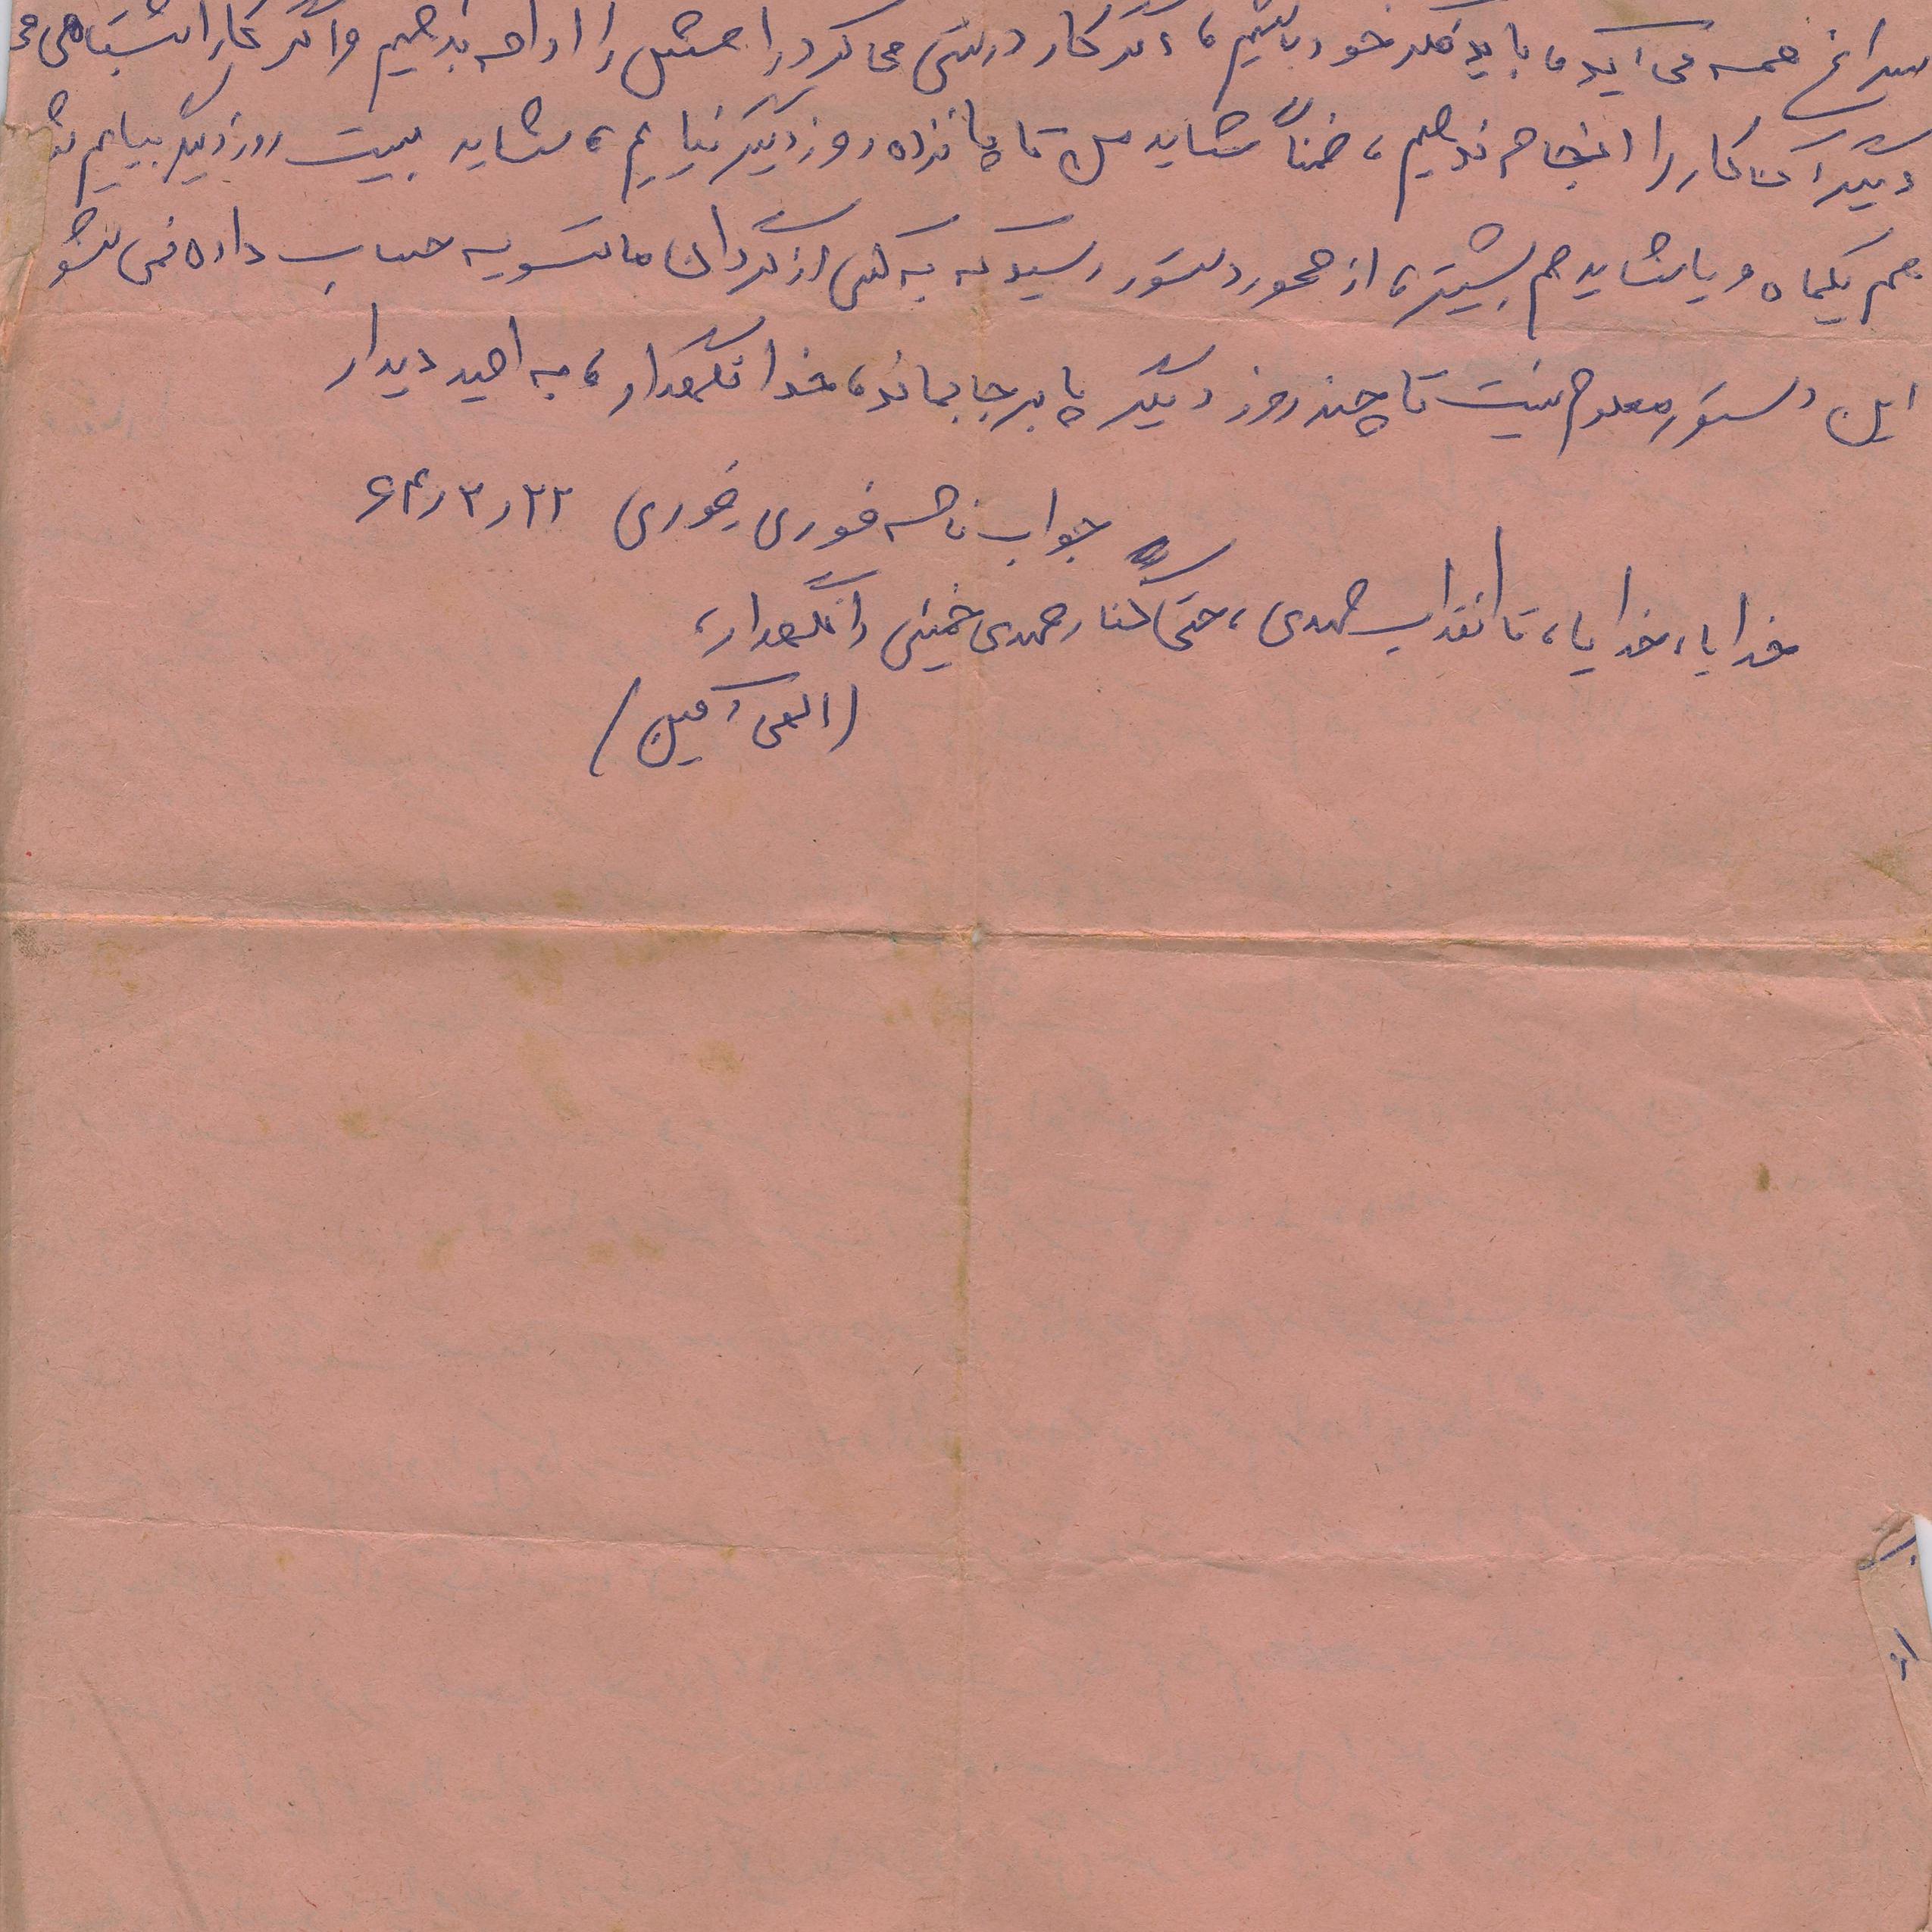 سراغ همه می آید، باید فکر خود باشیم، اگر کار درستی می کرد راهش را ادامه بدهیم و اگر کار اشتباهی می
دیگر آن کار را انجام ندهیم، ضمناً شاید من تا پانزده روز دیگر نیایم، شاید بیست روز دیگر بیایم
هم یکماه و یا شاید هم بیشتر، از محور دستور رسید که به کسی از گردان ما تسویه حساب داده نمی شو
این دستور معلوم نیست تا چند روز دیگر پا برجا بماند، خدا نگهدار، به امید دیدار
جواب نامه فوری فوری ۶۴٫۳٫۲۲
خدایا، خدایا، تا انقلاب مهدی، حتی کنار مهدی خمینی را نگهدار،
(الهی آمین)
از